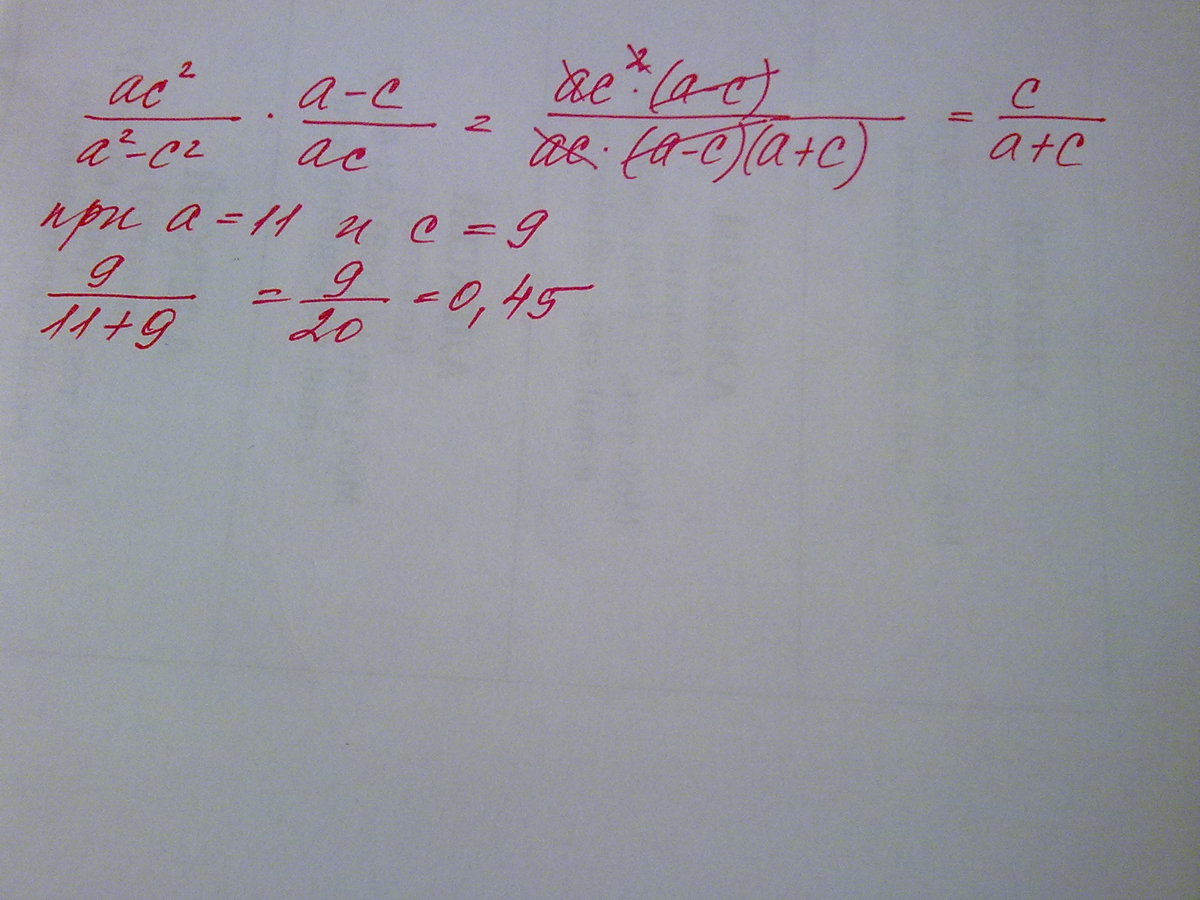 ac²/(a²-c²) · (a-c)/(ac) = (ac²·(a-c))/(ac·(a-c)(a+c)) = c/(a+c)
при a = 11 и c = 9
9/(11+9) = 9/20 = 0,45